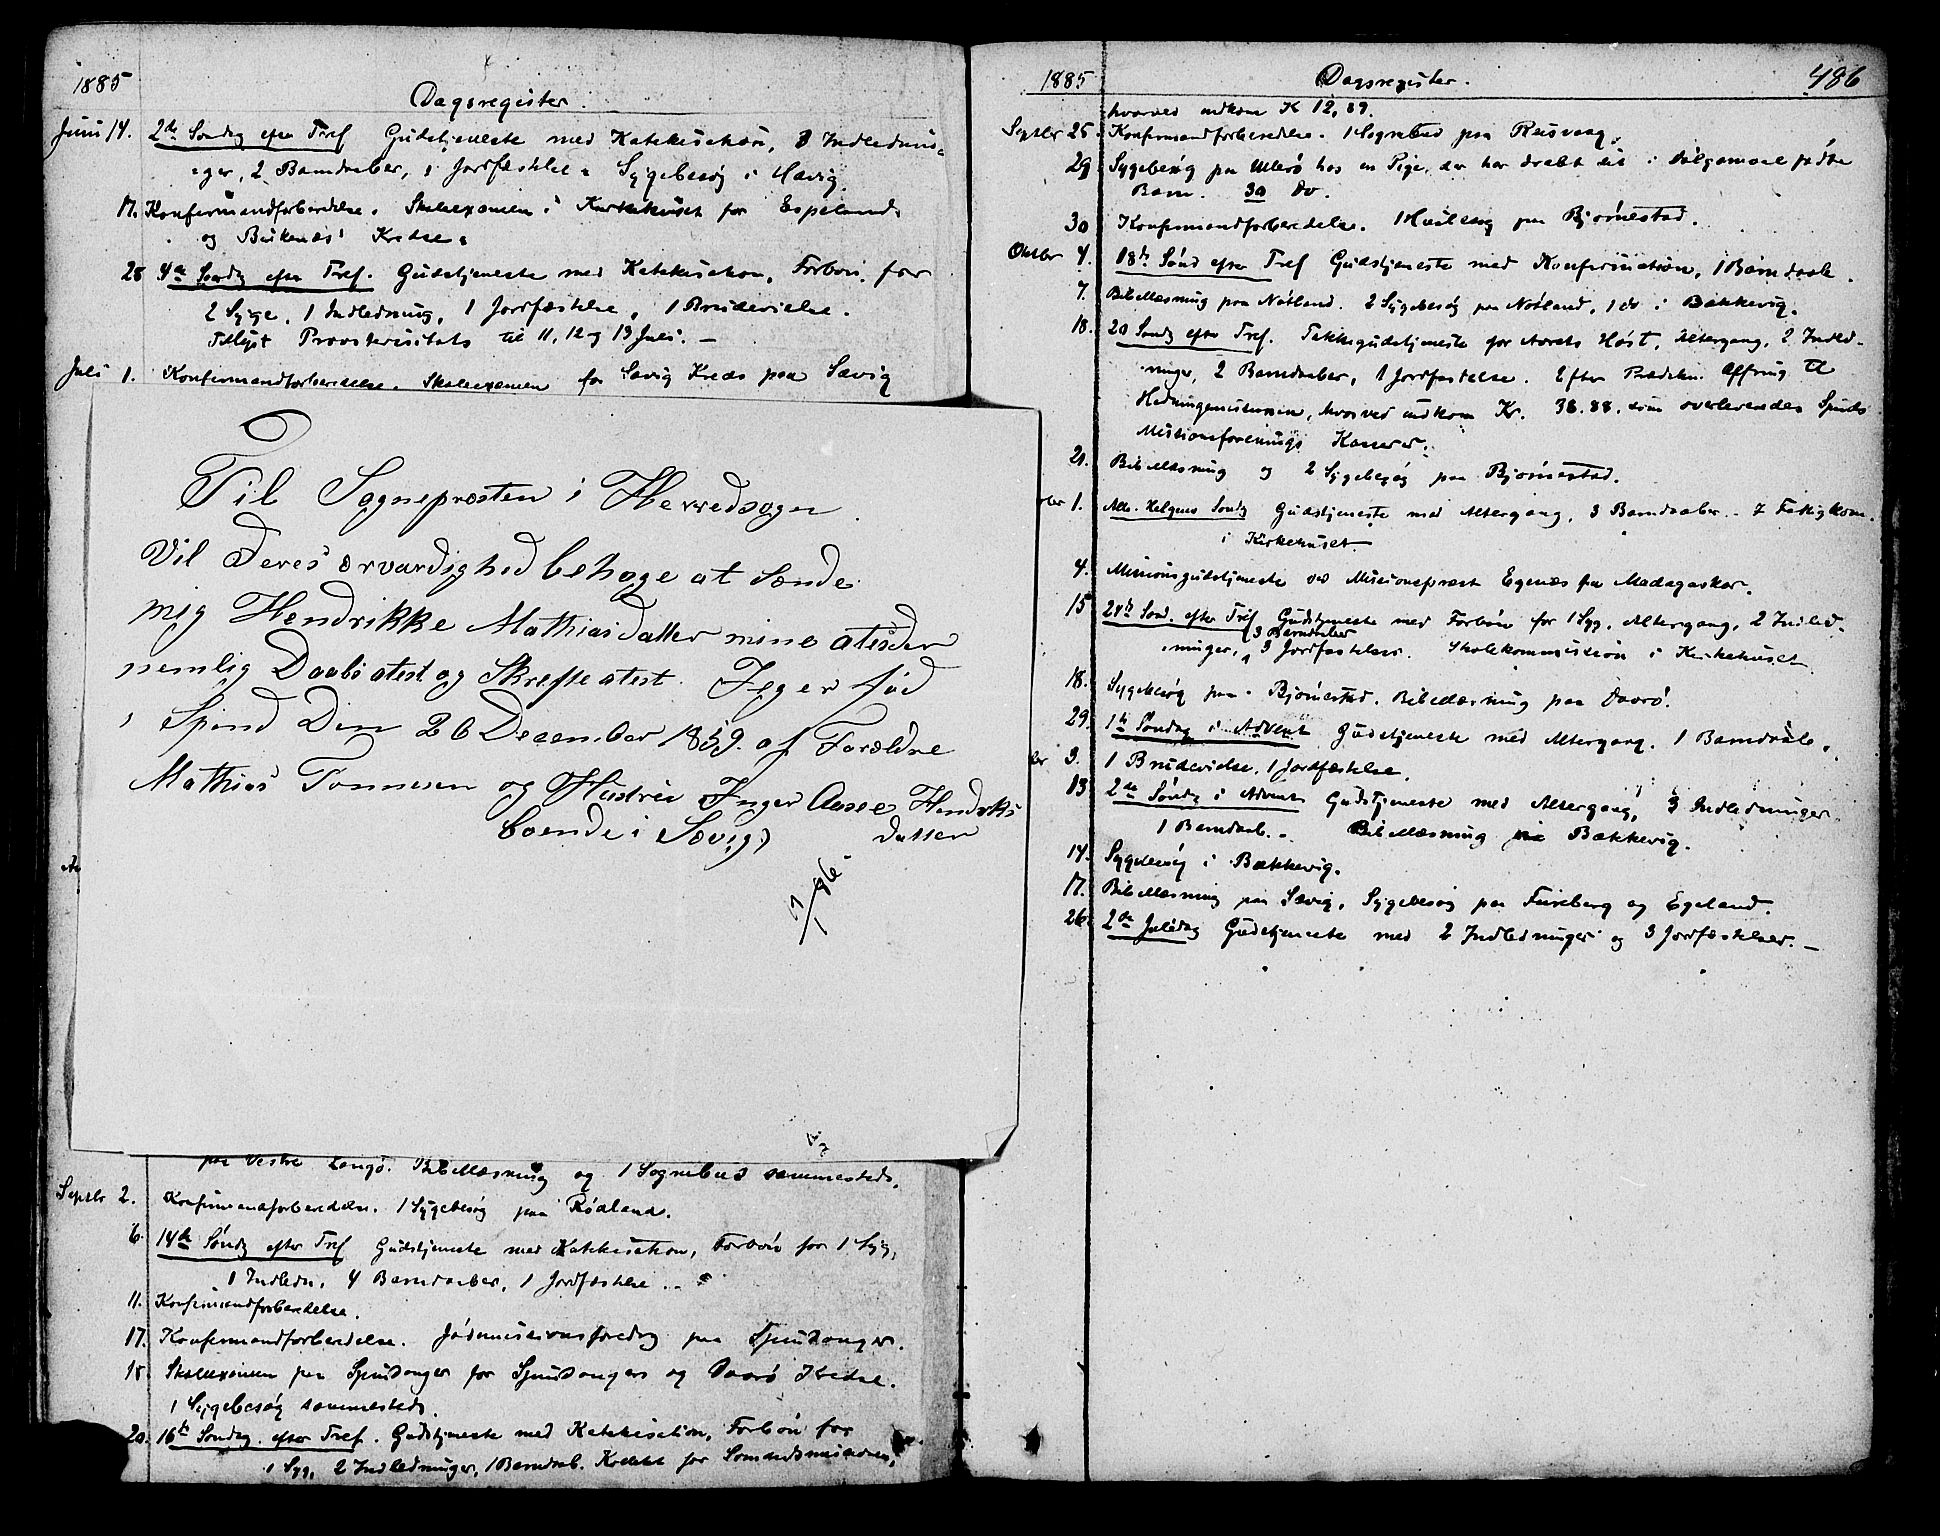 1885
Dagsregister.
Juni 14. 2de Søndg efter Tref Gudstjeneste med Katekisation, 3 Indlednin-
ger, 2 Barndaaber, 1 Jordfæstelse. Sygebesøg i Hævig.
17. Konfirmandforberedelse. Skoleexamen i Kirkehuset for Espelands
og Birkenæs' Kredse.
28 4de Søndg efter Tref. Gudstjeneste med Katekisation, Forbøn for
2 Syge, 1 Indledning, 1 Jordfæstelse, 1 Brudevielse.
Tillyst Provstevisitats til 11, 12 og 13 Juli. —
Juli 1. Konfirmandforberedelse. Skoleexamen for Sævig Kreds paa Sævig
Til Sognepræsten i Herredsogn.
Vil Deres Ærværdighed behage at sende
mig Hendrikke Mathiasdatter mine atester
nemlig Daabsatest og Skrefteatest. Jeg er fød
i Spind Den 26 December 1859. af Forældre
Mathias Tonnesen og Hustru Inger Aase Hendriks
boende i Sævig) datter
7/1 86
paa Vestre Langø. Bibellæsning og 1 Sognebud sammesteds.
Septbr 2. Konfirmandforberedelse. 1 Sygebesøg paa Rødland.
6. 14de Søndg efter Tref Gudstjeneste med Katekisation, Forbøn for 1 Syg,
1 Indledn, 4 Barndaaber, 1 Jordfæstelse.
11. Konfirmandforberedelse.
17. Konfirmandforberedelse. Jødemissionsforedrg paa Spindsanger.
18. Skoleexamen paa Spindsanger for Spindsangers og Daarø Kredse.
1 Sygebesøg sammesteds.
20. 16de Søndag efter Tref. Gudstjeneste med Katekisation, Forbøn for
1 Syg, 2 Indledninger, 1 Barndaab. Kollekt for Sømandsmissionen,
1885
Dagsregister.
486
hvorved indkom K 12,89.
Septbr 25. Konfirmandforberedelse. 1 Sognebud paa Reisvaag.
29 Sygebesøg paa Ullerø hos en Pige, der har dræbt sit i Dølgsmaal fødte
Barn. 30 do.
30 Konfirmandforberedelse. 1 paa Bjørnestad.
Oktbr 4. 18de Sønd efter Tref Gudstjeneste med Konfirmation, 1 Barndaab.
7. Bibellæsning paa Nøtland. 2 Sygebesøg paa Nøtland, 1 do i Bækkevig.
18. 20 Søndg efter Tref. Takkegudstjeneste for Aarets Høst, Altergang, 2 Indled-
ninger, 2 Barndaaber, 1 Jordfæstelse. Efter Prædiken Offring til
Hedningemissionen, hvorved indkom Kr. 38.88. som overleveredes Spinds
Missionsforenings Kasserer.
21. Bibellæsning og 2 Sygebesøg paa Bjørnestad.
br 1. Alle Helgens Søndg Gudstjeneste med Altergang, 3 Barndaaber. – Fattigkom.
i Kirkehuset.
4. Missionsgudstjeneste ved Missionsprest Egenæs fra Madagaskar.
15 24de Sønd. efter Tref Gudstjeneste med Forbøn for 1 Syg, Altergang, 2 Indled-
3 Barndaaber
ninger, 3 Jordfæstelser. Skolekommission i Kirkehuset
18. Sygebesøg paa Bjørnestad. Bibellæsning paa Daarø.
29. 1ste Søndag i Advent Gudstjeneste med Altergang. 1 Barndaab.
br 3. 1 Brudevielse. 1 Jordfæstelse.
13 2de Søndg i Advent Gudstjeneste med Altergang, 3 Indledninger
1 Barndaab. Bibellæsning Bækkevig.
14. Sygebesøg i Bækkevig.
17. Bibellæsning paa Sævig, Sygebesøg paa Fureberg og Egeland.
26. 2den Juledag Gudstjeneste med 2 Indledninger og 3 Jordfæstelser. —